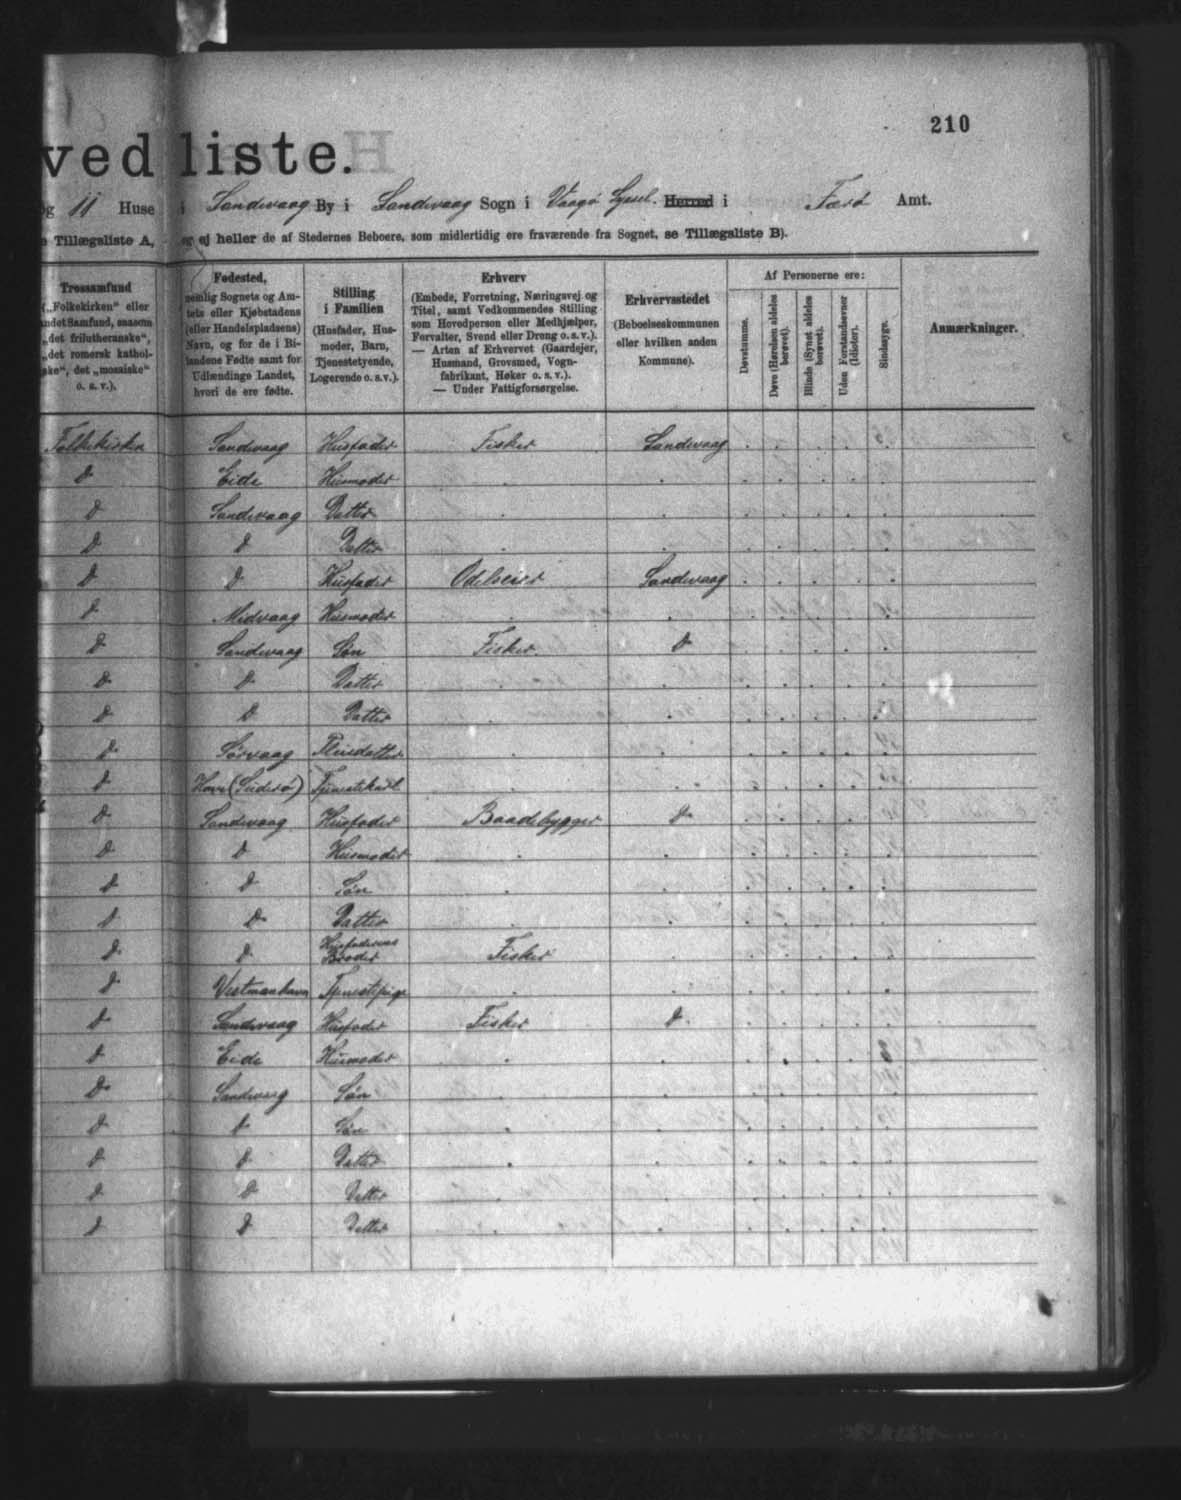 210
vedliste.
og 11 Huse i Sandevaag By i Sandevaag Sogn i Vaagø Syssel. Herred i Færø Amt.
Tillægsliste A, og ej heller de af Stedernes Beboere, som midlertidig ere fraværende fra Sognet, se Tillægsliste B).
Trossamfund
(„Folkekirken“ eller
andet Samfund, saasom
„det frilutheranske“,
„det romersk kathol-
ske“, det „mosaiske“
o. s. v.).
Fødested,
nemlig Sognets og Am-
tets eller Kjøbstadens
(eller Handelspladsens)
Navn, og for de i Bi-
landene Fødte samt for
Udlændinge Landet,
hvori de ere fødte.
Stilling
i Familien
(Husfader, Hus-
moder, Barn,
Tjenestetyende,
Logerende o. s. v.).
Erhverv
(Embede, Forretning, Næringsvej og
Titel, samt Vedkommendes Stilling
som Hovedperson eller Medhjælper,
Forvalter, Svend eller Dreng o. s. v.).
— Arten af Erhvervet (Gaardejer,
Husmand, Grovsmed, Vogn-
fabrikant, Høker o. s. v.).
— Under Fattigforsørgelse.
Erhvervsstedet
(Beboelseskommunen
eller hvilken anden
Kommune).
Af Personerne ere:
Døvstumme.
Døve (Hørelsen aldeles
berøvet).
Blinde (Synet aldeles
berøvet).
Uden Forstandsevner
(Idioter).
Sindssyge.
Anmærkninger.
Folkekirken Sandevaag Husfader Fisker Sandevaag
D Eide Husmoder
D Sandevaag Datter
D D Datter
D D Husfader Odelseier Sandevaag
D Midvaag Husmoder
D Sandevaag Søn Fisker D
D D Datter
D D Datter
D Sørvaag Pleiedatter
D Hove (Suderø) Tjenestekarl
D Sandevaag Husfader Baadebygger D
D D Husmoder
D D Søn
D D Datter
D D Husfaderens Broder Fisker
D Vestmanhavn Tjenestepige
D Sandevaag Husfader Fisker D
D Eide Husmoder
D Sandevaag Søn
D D Søn
D D Datter
D D Datter
D D Datter